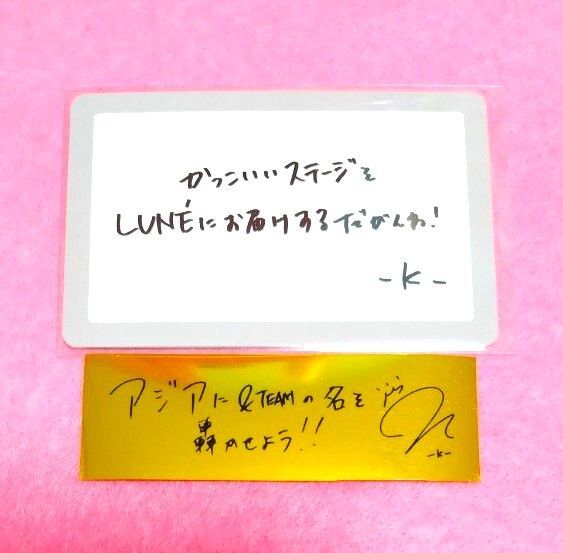 かっこいいステージを
LUNÉにお届けするだがんね!
-K-
アジアに&TEAMの名を
轟かせよう!!
-K-